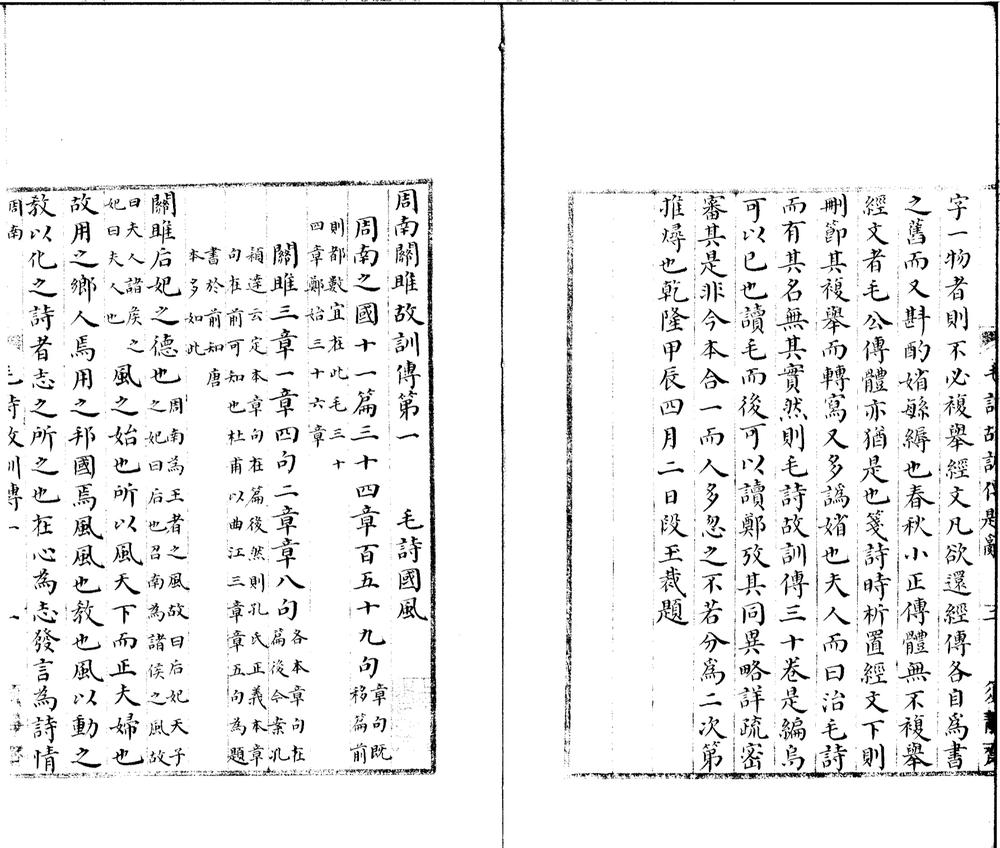 字一物者則不必複舉經文凡欲還經傳各自爲書
之舊而又斟酌媘緐縟也春秋小正傳體無不複舉
經文者毛公傳體亦猶是也箋詩時析置經文下則
刪節其複舉而轉寫又多譌媘也夫人而曰治毛詩
而有其名無其實然則毛詩故訓傳三十卷是編烏
可以已也讀毛而後可以讀鄭攷其同異略詳疏密
審其是非今本合一而人多忽之不若分爲二次第
推燖也乾隆甲辰四月二日段玉裁題
周南關雎故訓傳第一 毛詩國風
周南之國十一篇三十四章百五十九句 章句既移篇前
則都數宜在此毛三十
四章鄭始三十六章
關雎三章一章四句二章章八句 各本章句在篇後今案孔
穎達云定本章句在篇後然則孔氏正義本章
句在前可知也杜甫以曲江三章章五句爲題
書於前如唐
本多如此
關雎后妃之德也 周南為王者之風故曰后妃天子
之妃曰后也召南為諸侯之風故
曰夫人諸侯之
妃曰夫人也 風之始也所以風天下而正夫婦也
故用之鄉人焉用之邦國焉風風也教也風以動之
教以化之詩者志之所之也在心為志發言為詩情
周南
毛詩故訓傳一
一